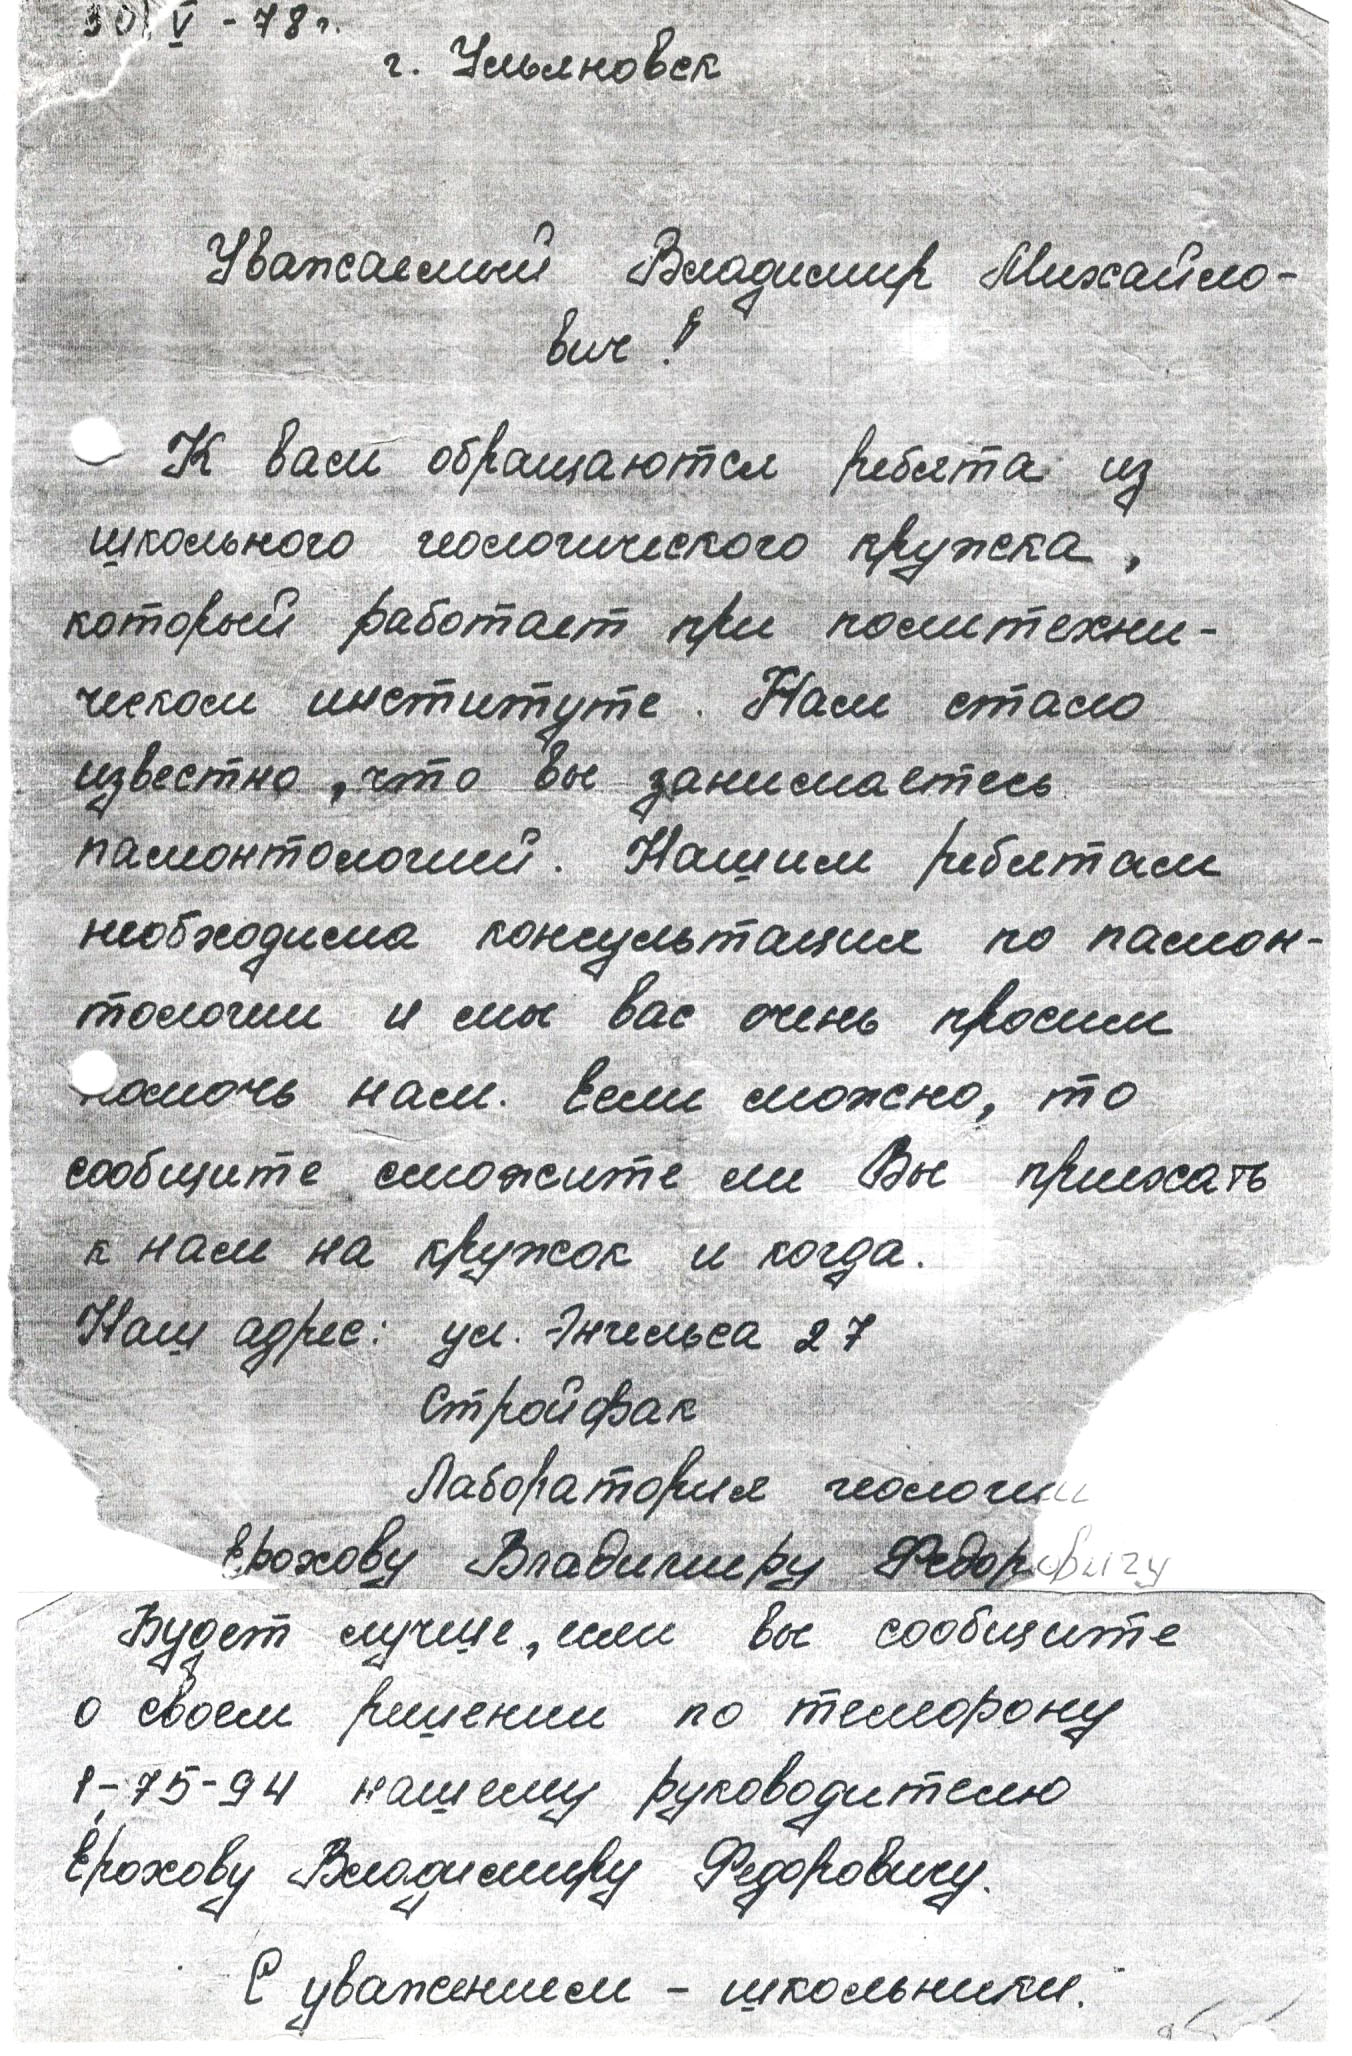 30/V - 78 г.
г. Ульяновск
Уважаемый Владимир Михайло-
вич!
К вам обращаются ребята из
школьного геологического кружка,
который работает при политехни-
ческом институте. Нам стало
известно, что вы занимаетесь
палеонтологией. Нашим ребятам
необходима консультация по палеон-
тологии и мы вас очень просим
помочь нам. Если можно, то
сообщите сможите ли Вы приехать
к нам на кружок и когда.
Наш адрес: ул. Энгельса 27
Стройфак
Лаборатория геологии
Ерохову Владимиру Федоровичу
Будет лучше, если вы сообщите
о своем решении по телефону
1-75-94 нашему руководителю
Ерохову Владимиру Федоровичу.
С уважением - школьники.